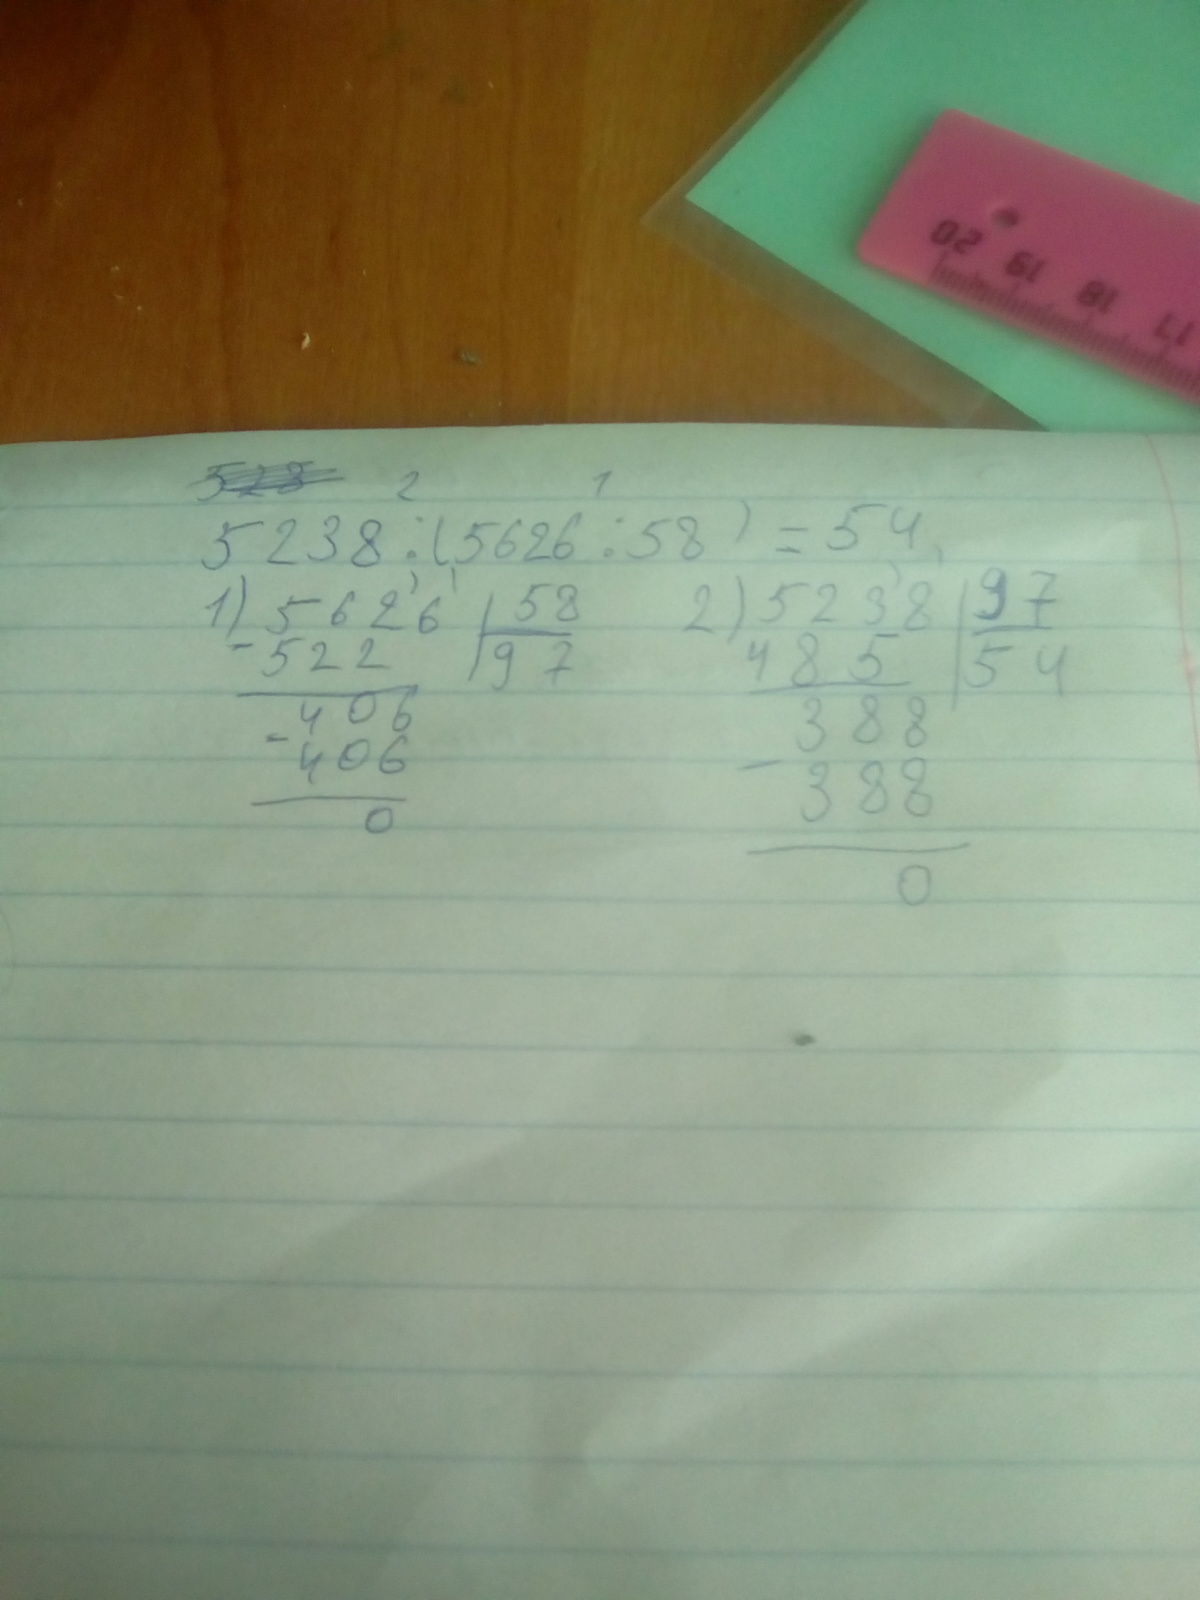 20 19 18 17
2 1
5238:(5626:58)=54
1) 5626 58 2) 5238 97
-522 97 485 54
406 388
-406 -388
0 0